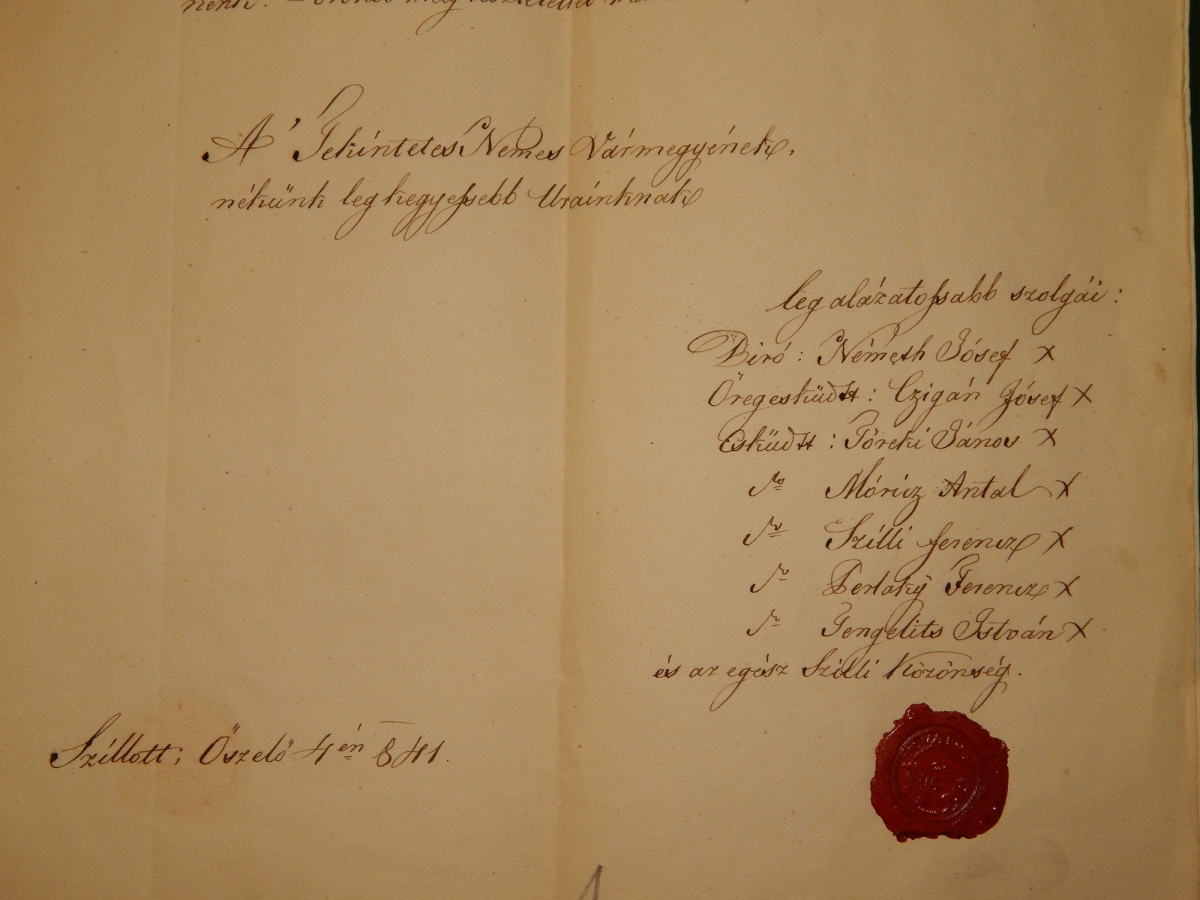 A' Tekíntetes Nemes Vármegyének,
nékünk legkegyessebb Uraínknak
legalázatossabb szolgái:
Biró: Németh Jósef x
Öregesküdtt: Czigán Jósef x
Esküdtt: Töreki János x
Móricz Antal x
Szílli Ferencz x
Perlaky Ferencz x
Tengelits István x
és az egész Szílli Közönség.
Szíllott; Öszelö 4én 841.